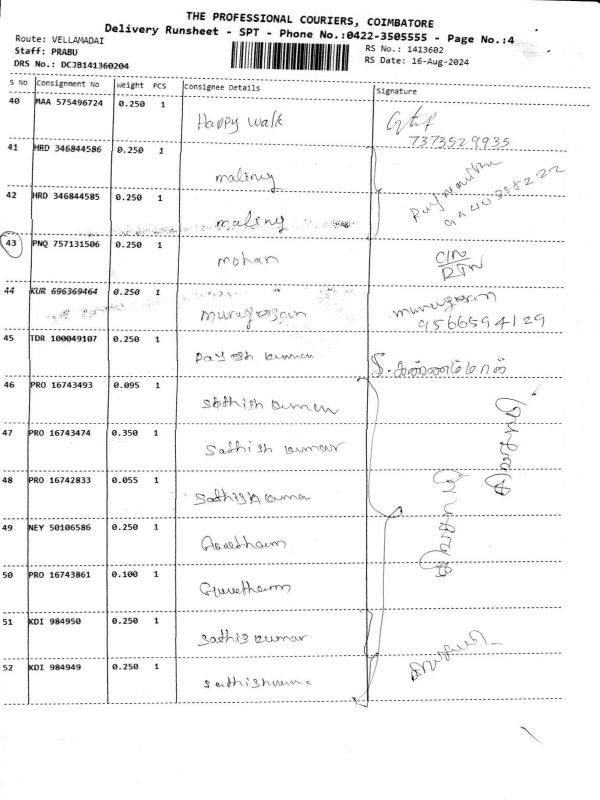 THE PROFESSIONAL COURIERS, COIMBATORE
Delivery Runsheet - SPT - Phone No.:0422-3505555 - Page No.:4
Route: VELLAMADAI
Staff: PRABU
DRS No.: DCJB141360204
RS No.: 1413602
RS Date: 16-Aug-2024
S No Consignment No Weight PCS Consignee Details Signature
40 MAA 575496724 0.250 1 Happy walk
7373529935
41 HRD 346844586 0.250 1 maliny
42 HRD 346844585 0.250 1 maliny
43 PNQ 757131506 0.250 1 mohan C/N
RTN
44 KUR 696369464 0.250 1 murugesan murugesan
9566594129
45 TDR 100049107 0.250 1
46 PRO 16743493 0.095 1 sathish kumar
47 PRO 16743474 0.350 1 Sathish kumar
48 PRO 16742833 0.055 1 Sathish kuma
49 NEY 50106586 0.250 1
50 PRO 16743861 0.100 1
51 KDI 984950 0.250 1 sathis kumar
52 KDI 984949 0.250 1